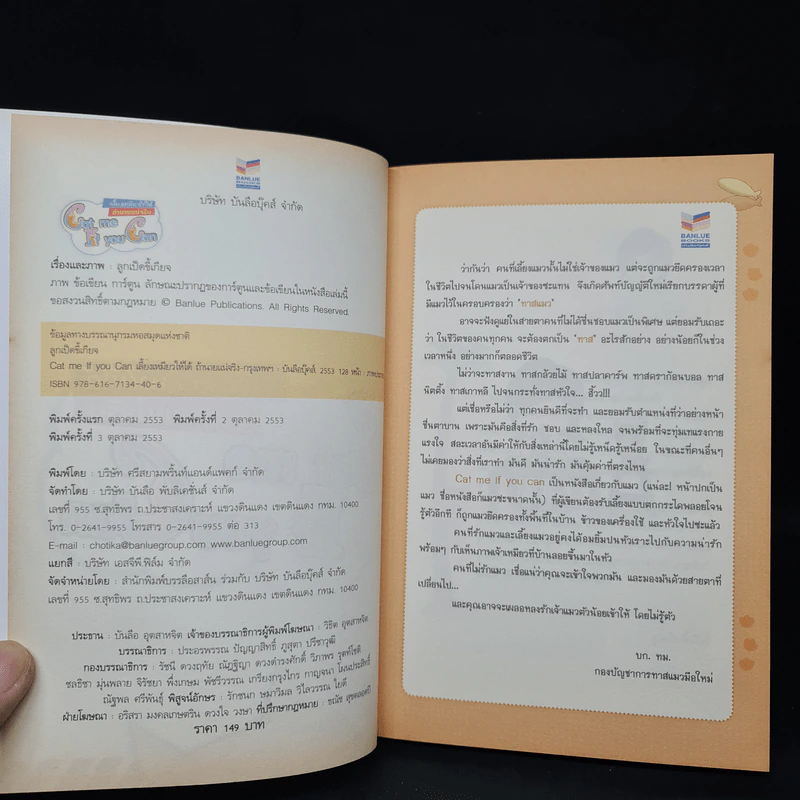 BANLUE
บริษัท บันลือบุ๊คส์ จำกัด
Cat me
If you Can
เรื่องและภาพ : ลูกเป็ดขี้เกียจ
ภาพ ข้อเขียน การ์ตูน ลักษณะปรากฏของการ์ตูนและข้อเขียนในหนังสือเล่มนี้
ขอสงวนสิทธิ์ตามกฎหมาย © Banlue Publications. All Rights Reserved.
ข้อมูลทางบรรณานุกรมหอสมุดแห่งชาติ
ลูกเป็ดขี้เกียจ
Cat me If you Can เลี้ยงเหมียวให้ได้ ถ้านายแน่จริง-กรุงเทพฯ : บันลือบุ๊คส์ 2553 128 หน้า : ภาพประกอบ
ISBN 978-616-7134-40-6
พิมพ์ครั้งแรก ตุลาคม 2553 พิมพ์ครั้งที่ 2 ตุลาคม 2553
พิมพ์ครั้งที่ 3 ตุลาคม 2553
พิมพ์โดย : บริษัท ศรีสยามพริ้นท์แอนด์แพคก์ จำกัด
จัดทำโดย : บริษัท บันลือ พับลิเคชั่นส์ จำกัด
เลขที่ 955 ซ.สุทธิพร ถ.ประชาสงเคราะห์ แขวงดินแดง เขตดินแดง กทม. 10400
โทร. 0-2641-9955 โทรสาร 0-2641-9955 ต่อ 313
E-mail : chotika@banluegroup.com www.banluegroup.com
แยกสี : บริษัท เอสจีพี.ฟิล์ม จำกัด
จัดจำหน่ายโดย : สำนักพิมพ์บรรลือสาส์น ร่วมกับ บริษัท บันลือบุ๊คส์ จำกัด
เลขที่ 955 ซ.สุทธิพร ถ.ประชาสงเคราะห์ แขวงดินแดง เขตดินแดง กทม. 10400
ประธาน : บันลือ อุตสาหจิต เจ้าของบรรณาธิการผู้พิมพ์โฆษณา : วิธิต อุตสาหจิต
บรรณาธิการ : ประอรพรรณ ปัญญาสิทธิ์ ภูสุดา ปรีชาวุฒิ
กองบรรณาธิการ : รัชนี ดวงฤทัย ณัฏฐิญา ดวงดำรงศักดิ์ วิภาพร
ชลธิชา มุ่นพลาย จิรัชยา พึ่งเกษม พัชรีวรรณ เกรียงกรุงไกร กาญจนา
ณัฐพล ศรีพันธุ์ พิสูจน์อักษร : รักชนก ษมาวิมล วิไลวรรณ ใยดี
ฝ่ายโฆษณา : อริสรา มงคลเกษตริน ดวงใจ วงษา ที่ปรึกษากฎหมาย : ชณัช
ราคา 149 บาท
BANLUE
BOOKS
ว่ากันว่า คนที่เลี้ยงแมวนั้นไม่ใช่เจ้าของแมว แต่จะถูกแมวยึดครองเวลา
ในชีวิตไปจนโดนแมวเป็นเจ้าของซะแทน จึงเกิดศัพท์บัญญัติใหม่เรียกบรรดาผู้ที่
มีแมวไว้ในครอบครองว่า "ทาสแมว"
อาจจะฟังดูแย่ในสายตาคนที่ไม่ได้ชื่นชอบแมวเป็นพิเศษ แต่ยอมรับเถอะ
ว่า ในชีวิตของคนทุกคน จะต้องตกเป็น "ทาส" อะไรสักอย่าง อย่างน้อยก็ในช่วง
เวลาหนึ่ง อย่างมากก็ตลอดชีวิต
ไม่ว่าจะทาสงาน ทาสกล้วยไม้ ทาสปลาคาร์พ ทาสดราก้อนบอล ทาส
นิตติ้ง ทาสเกาหลี ไปจนกระทั่งทาสหัวใจ... อิ้วว!!!
แต่เชื่อหรือไม่ว่า ทุกคนยินดีที่จะทำ และยอมรับตำแหน่งที่ว่าอย่างหน้า
ชื่นตาบาน เพราะมันคือสิ่งที่รัก ชอบ และหลงใหล จนพร้อมที่จะทุ่มเทแรงกาย
แรงใจ สละเวลาอันมีค่าให้กับสิ่งเหล่านี้โดยไม่รู้เหน็ดรู้เหนื่อย ในขณะที่คนอื่นๆ
ไม่เคยมองว่าสิ่งที่เราทำ มันดี มันน่ารัก มันคุ้มค่าที่ตรงไหน
Cat me If you can เป็นหนังสือเกี่ยวกับแมว (แน่ละ! หน้าปกเป็น
แมว ชื่อหนังสือก็แมวซะขนาดนั้น) ที่ผู้เขียนต้องรับเลี้ยงแบบตกกระไดพลอยโจน
รู้ตัวอีกที ก็ถูกแมวยึดครองทั้งพื้นที่ในบ้าน ข้าวของเครื่องใช้ และหัวใจไปซะแล้ว
คนที่รักแมวและเลี้ยงแมวอยู่คงได้อมยิ้มปนหัวเราะไปกับความน่ารัก
พร้อมๆ กับเห็นภาพเจ้าเหมียวที่บ้านลอยขึ้นมาในหัว
คนที่ไม่รักแมว เชื่อแน่ว่าคุณจะเข้าใจพวกมัน และมองมันด้วยสายตาที่
เปลี่ยนไป...
และคุณอาจจะเผลอหลงรักเจ้าแมวตัวน้อยเข้าให้ โดยไม่รู้ตัว
บก. ทม.
กองบัญชาการทาสแมวมือใหม่